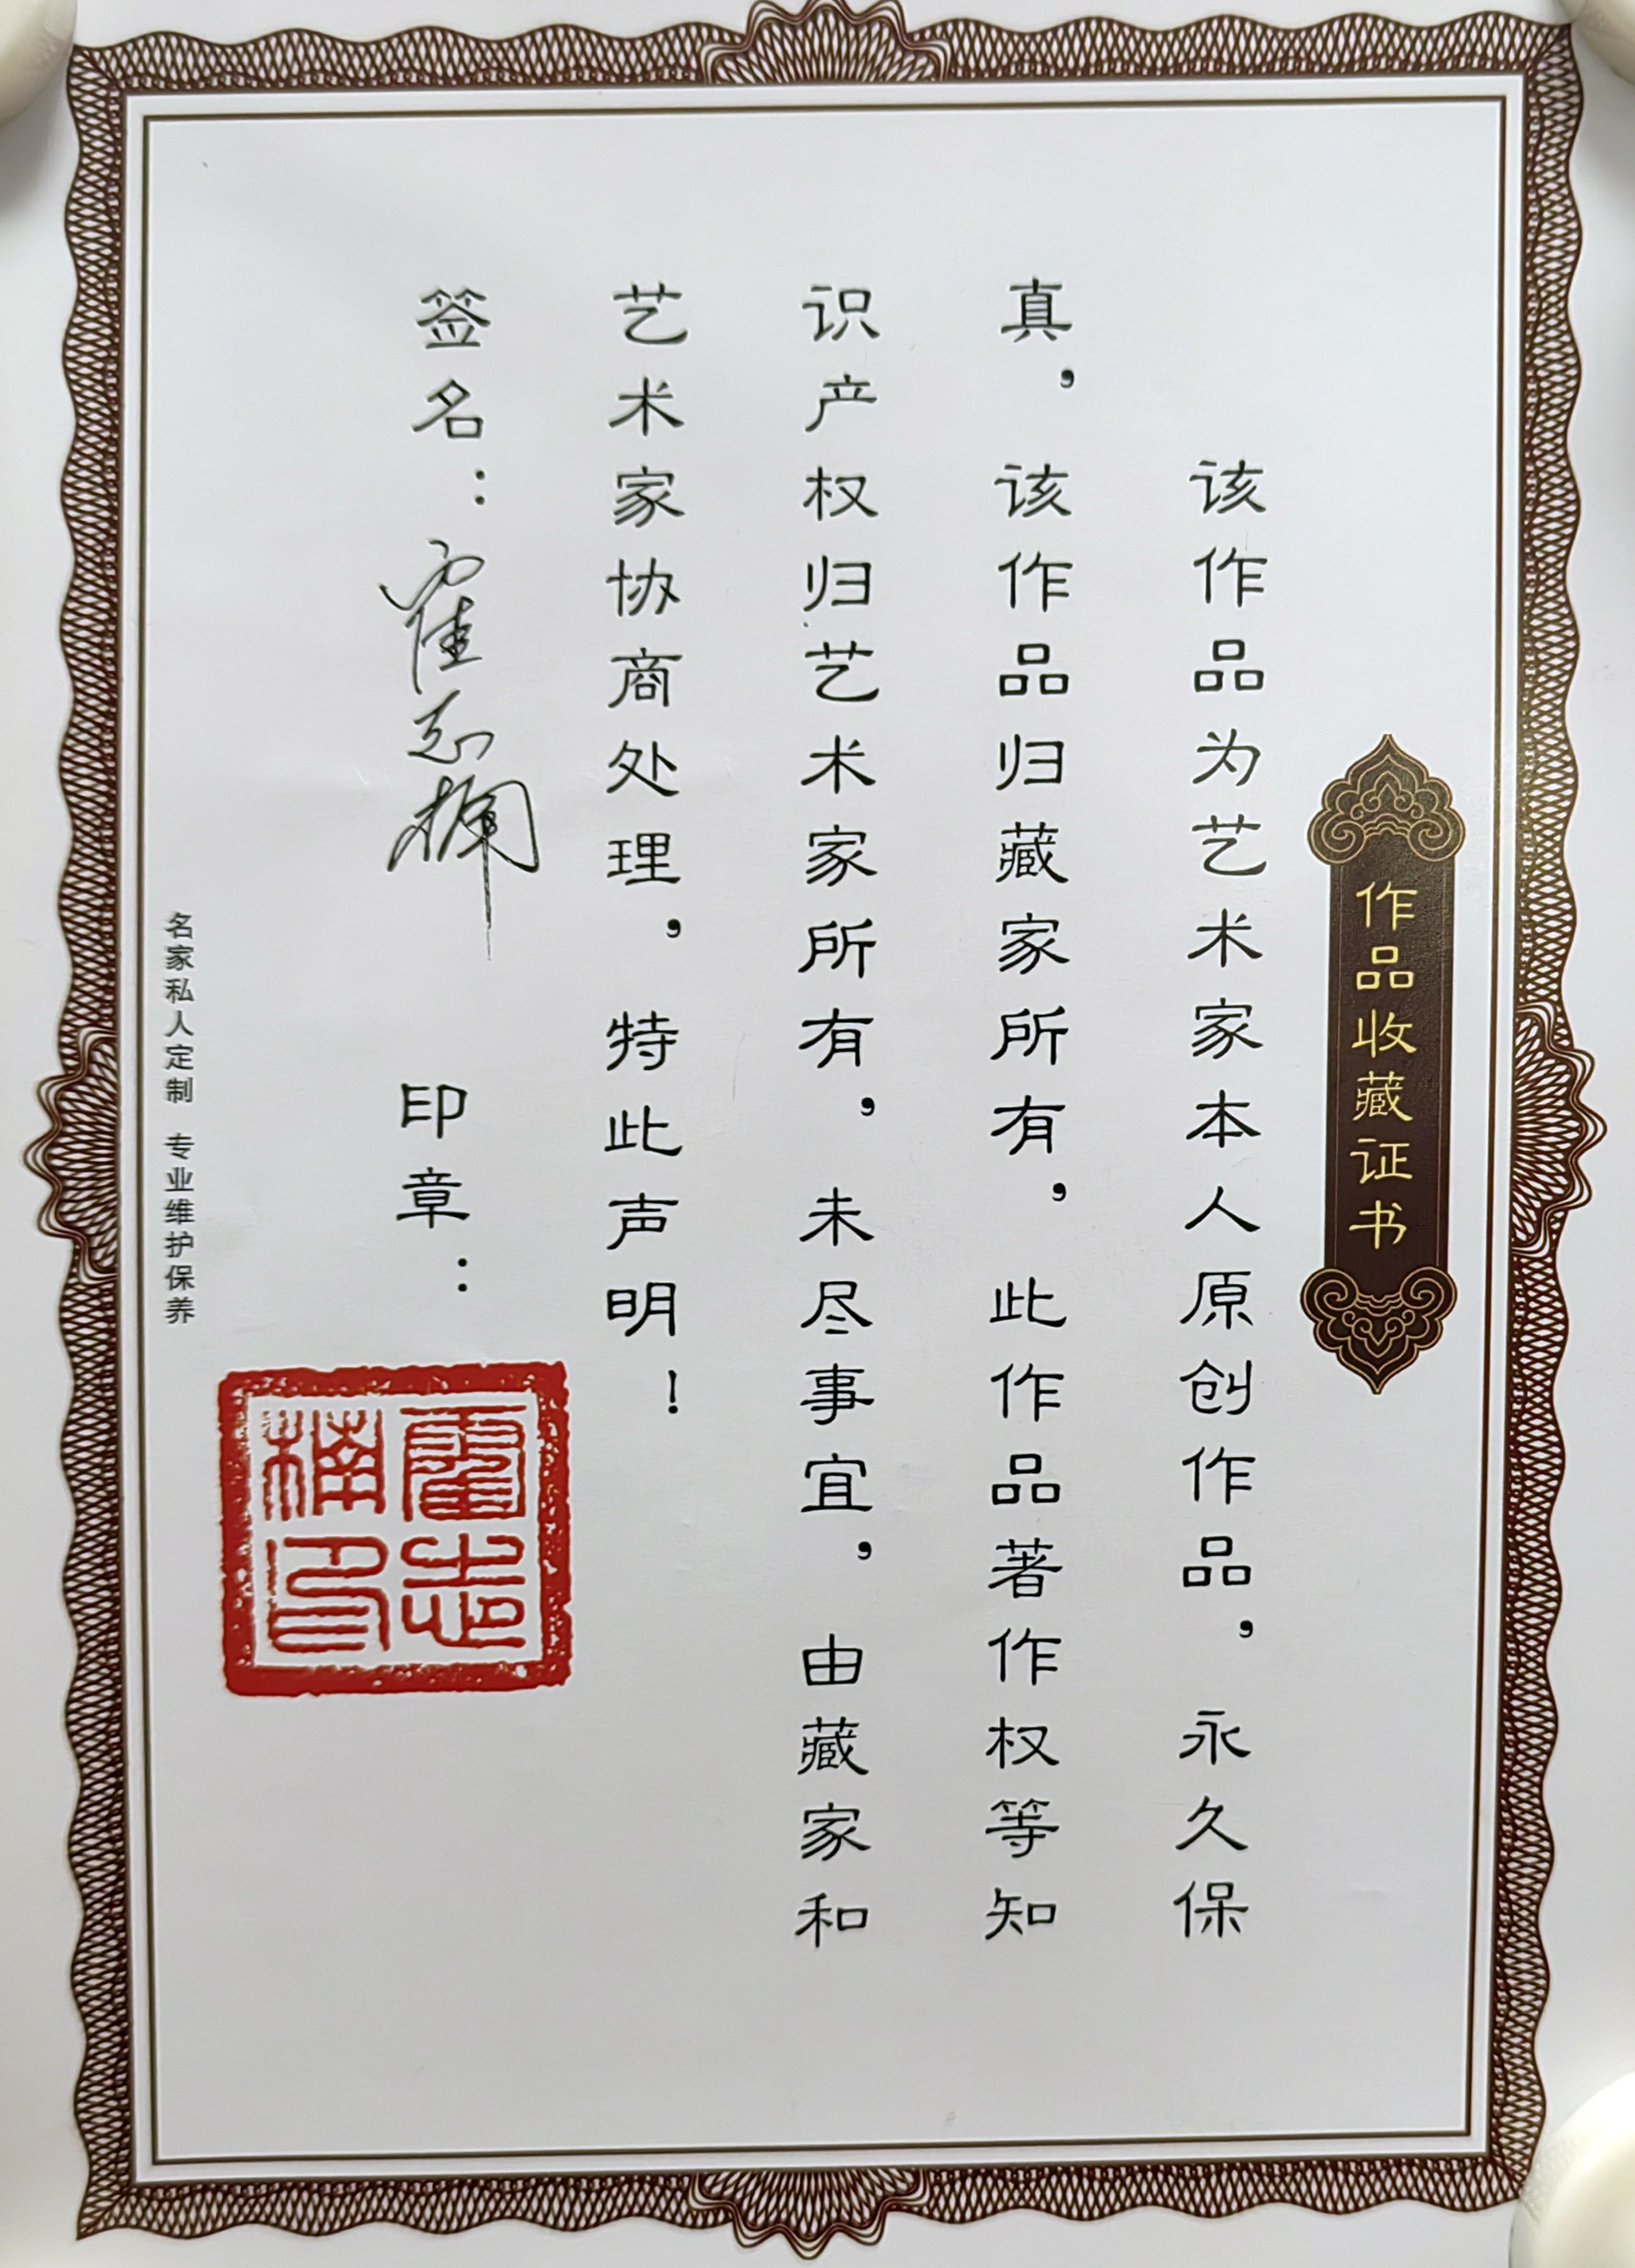 作品收藏证书
该作品为艺术家本人原创作品，永久保
真，该作品归藏家所有，此作品著作权等知
识产权归艺术家所有，未尽事宜，由藏家和
艺术家协商处理，特此声明！
签名：霍志楠 印章：
霍志楠印
名家私人定制 专业维护保养